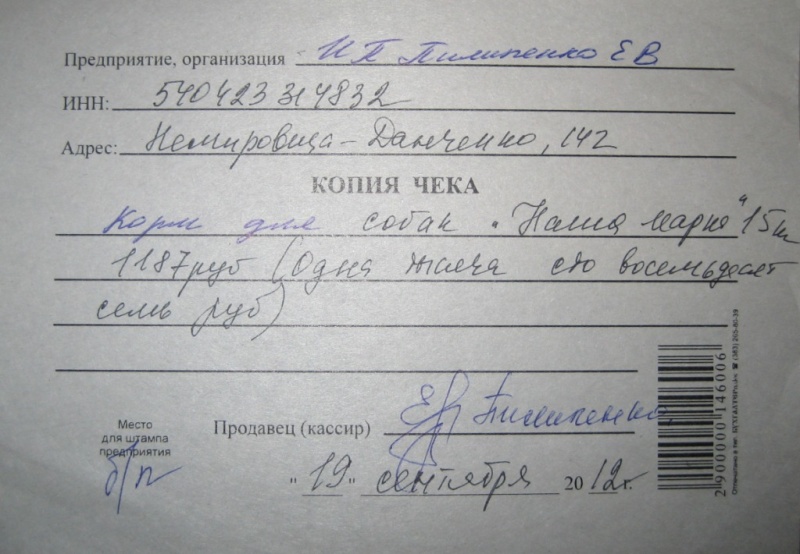 Предприятие, организация ИП Пилипенко Е В
ИНН: 540423314832
Адрес: Немировича-Данченко, 142
КОПИЯ ЧЕКА
Корм для собак "Наша марка" 15 кг
1187 руб (Одна тысяча сто восемьдесят
семь руб)
Место
для штампа
предприятия
б/п
Продавец (кассир) Пилипенко
"19" сентября 2012 г.
2 900000 146006